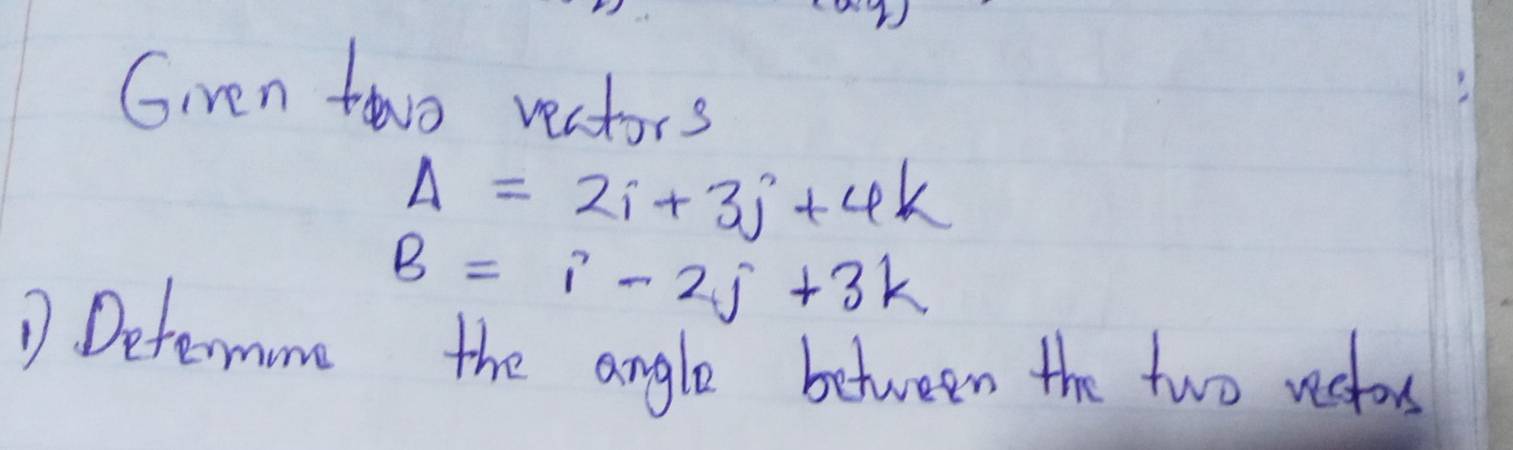 Given two vectors
A = 2i + 3j + 4k
B = i - 2j + 3k
i) Determine the angle between the two vectors